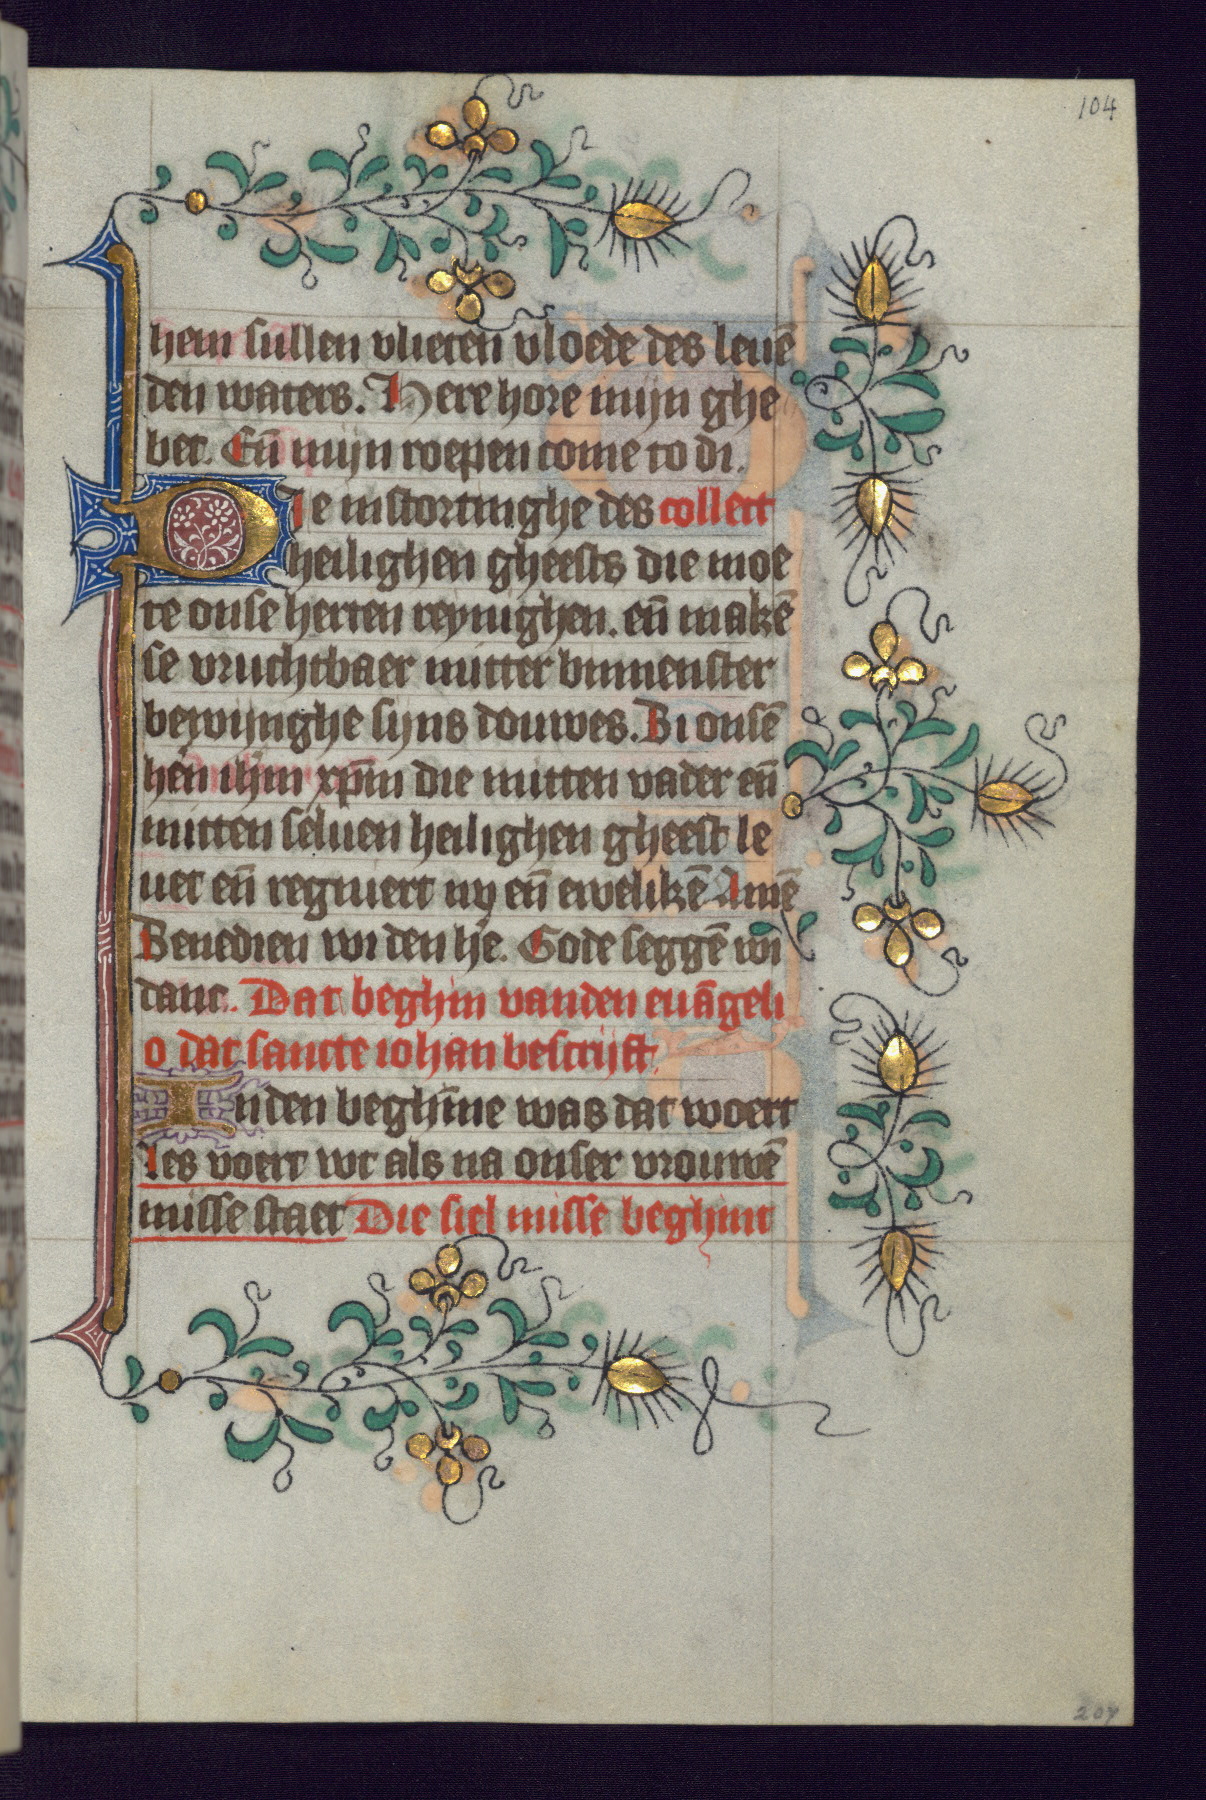 104
hem sullen vlieten vloede des leuē
den waters. Here hore mijn ghe
bet. Eñ mijn roepen come to di.
Die instortinghe des collect
heilighen gheests die moe
te onse herten reynighen. eñ makē
se vruchtbaer mitter binnenster
bewijnghe sijns douwes. Bi onsē
hēn ihm xp̄m die mitten vader eñ
mitten seluen heilighen gheest le
uet eñ regniert nŷ eñ ewelikē Amē
Benedien wi den hē. Gode seggē wi
danc. Dat beghin vanden euāgeli
o dat sancte iohan bescrijft
In den beghīne was dat woert
Les voert wt als na onser vrouwē
misse staet Die siel misse beghint
207